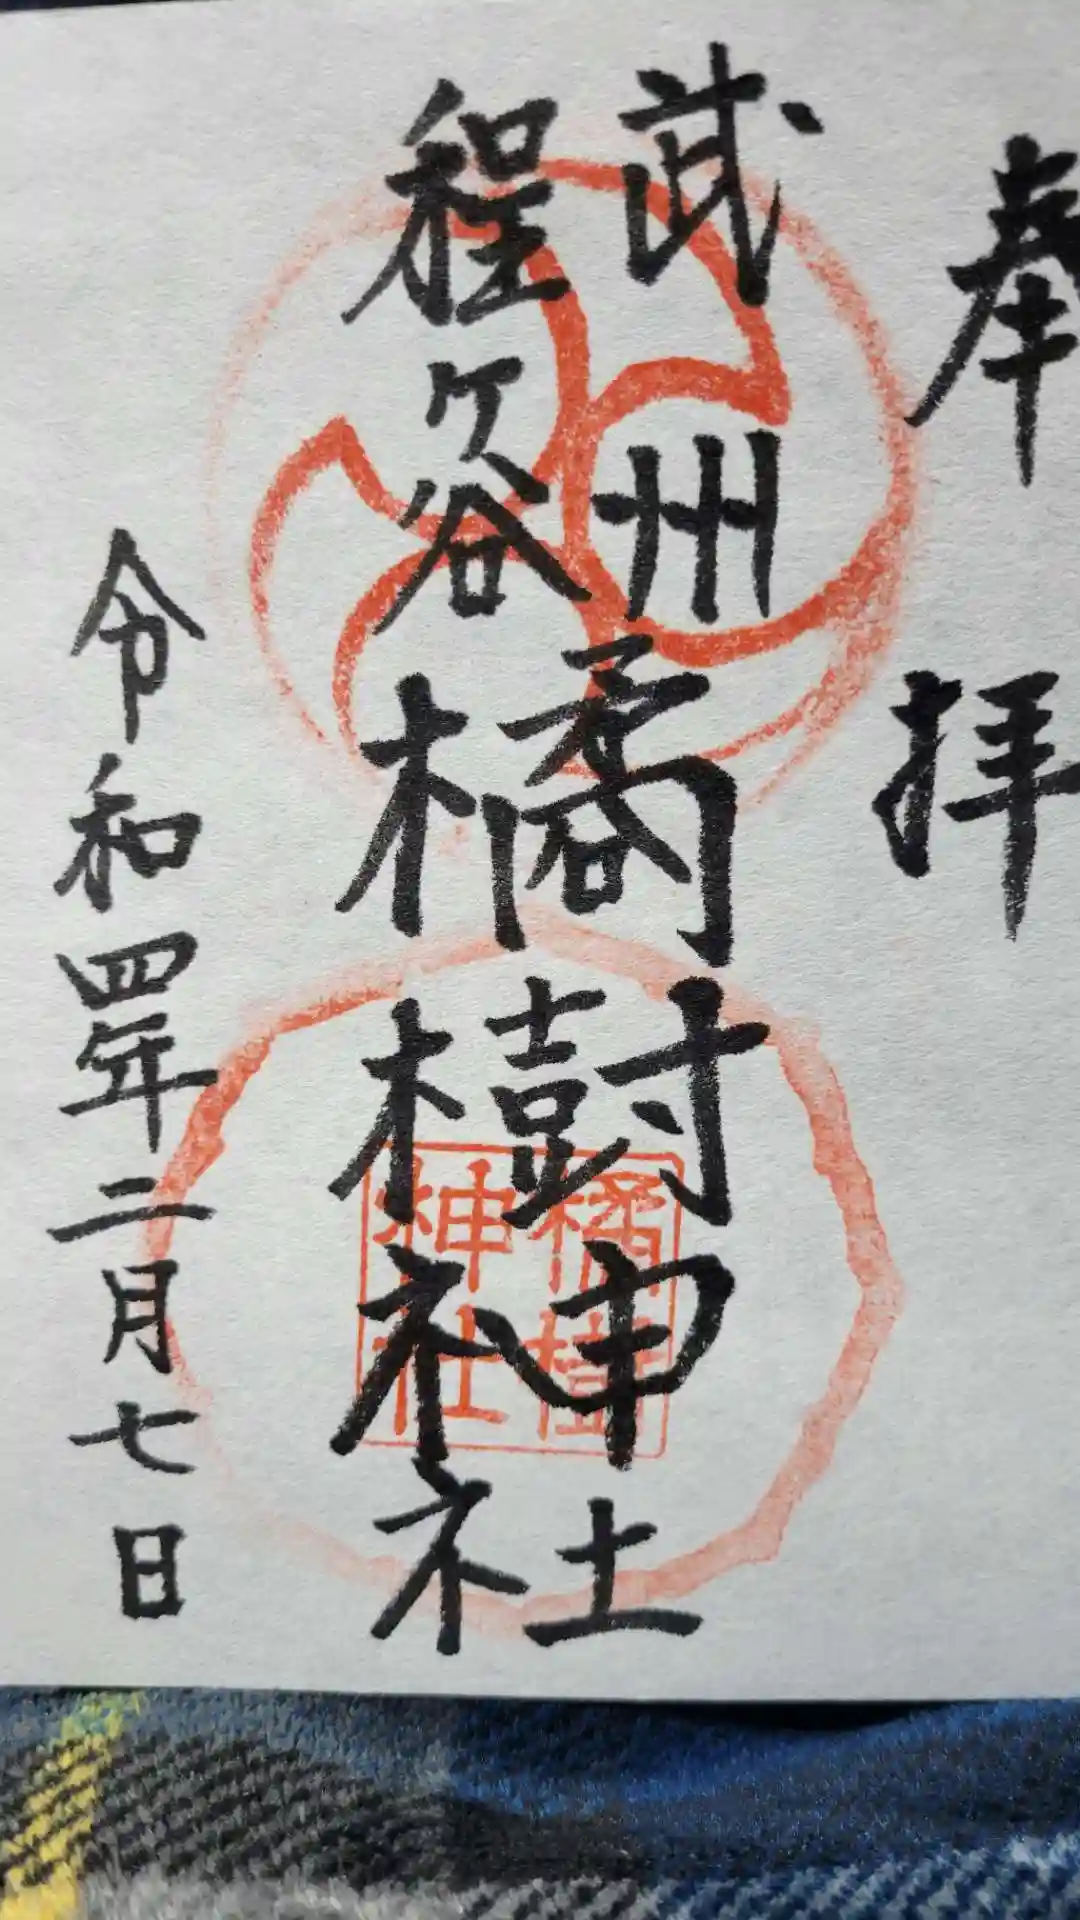 奉拝
武州
程ヶ谷
橘樹神社
橘樹
神社
令和四年二月七日